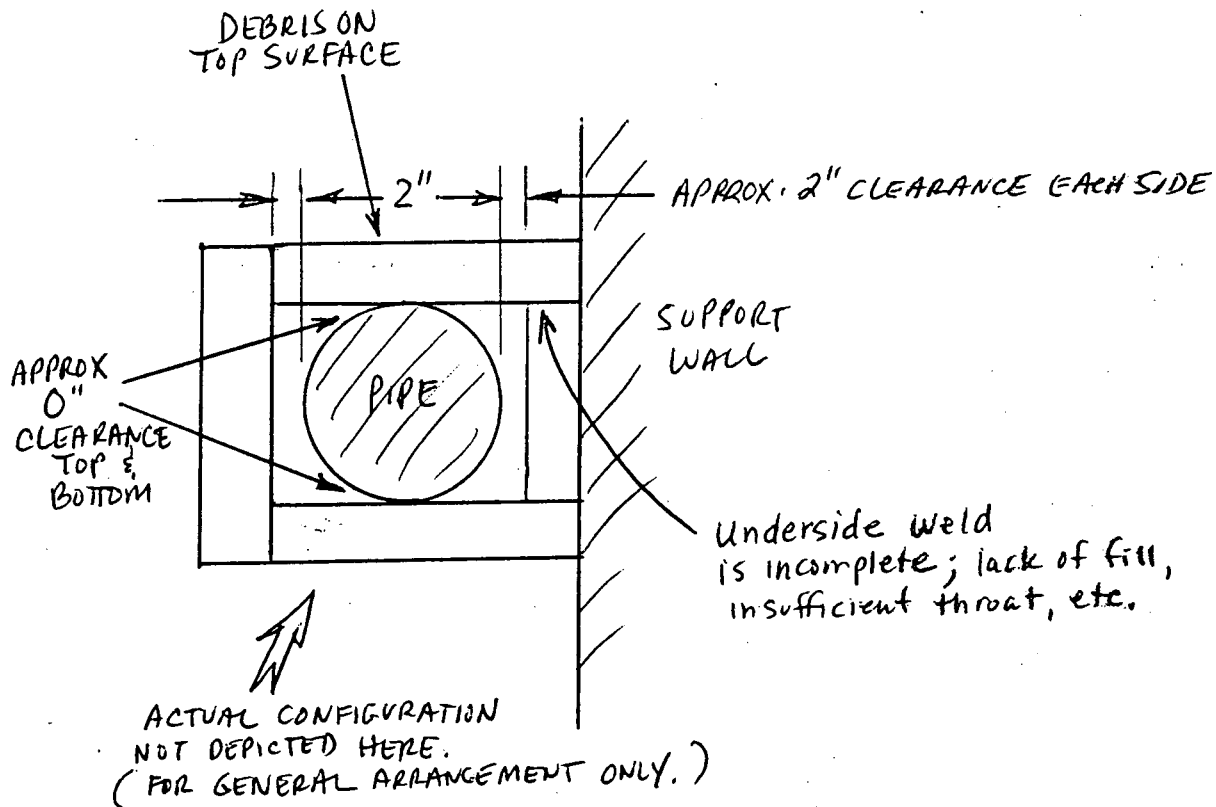 DEBRIS ON
TOP SURFACE
2"
APPROX. 2" CLEARANCE EACH SIDE
SUPPORT
WALL
APPROX
0"
CLEARANCE
TOP &
BOTTOM
PIPE
Underside weld
is incomplete; lack of fill,
insufficient throat, etc.
ACTUAL CONFIGURATION
NOT DEPICTED HERE.
(FOR GENERAL ARRANGEMENT ONLY.)